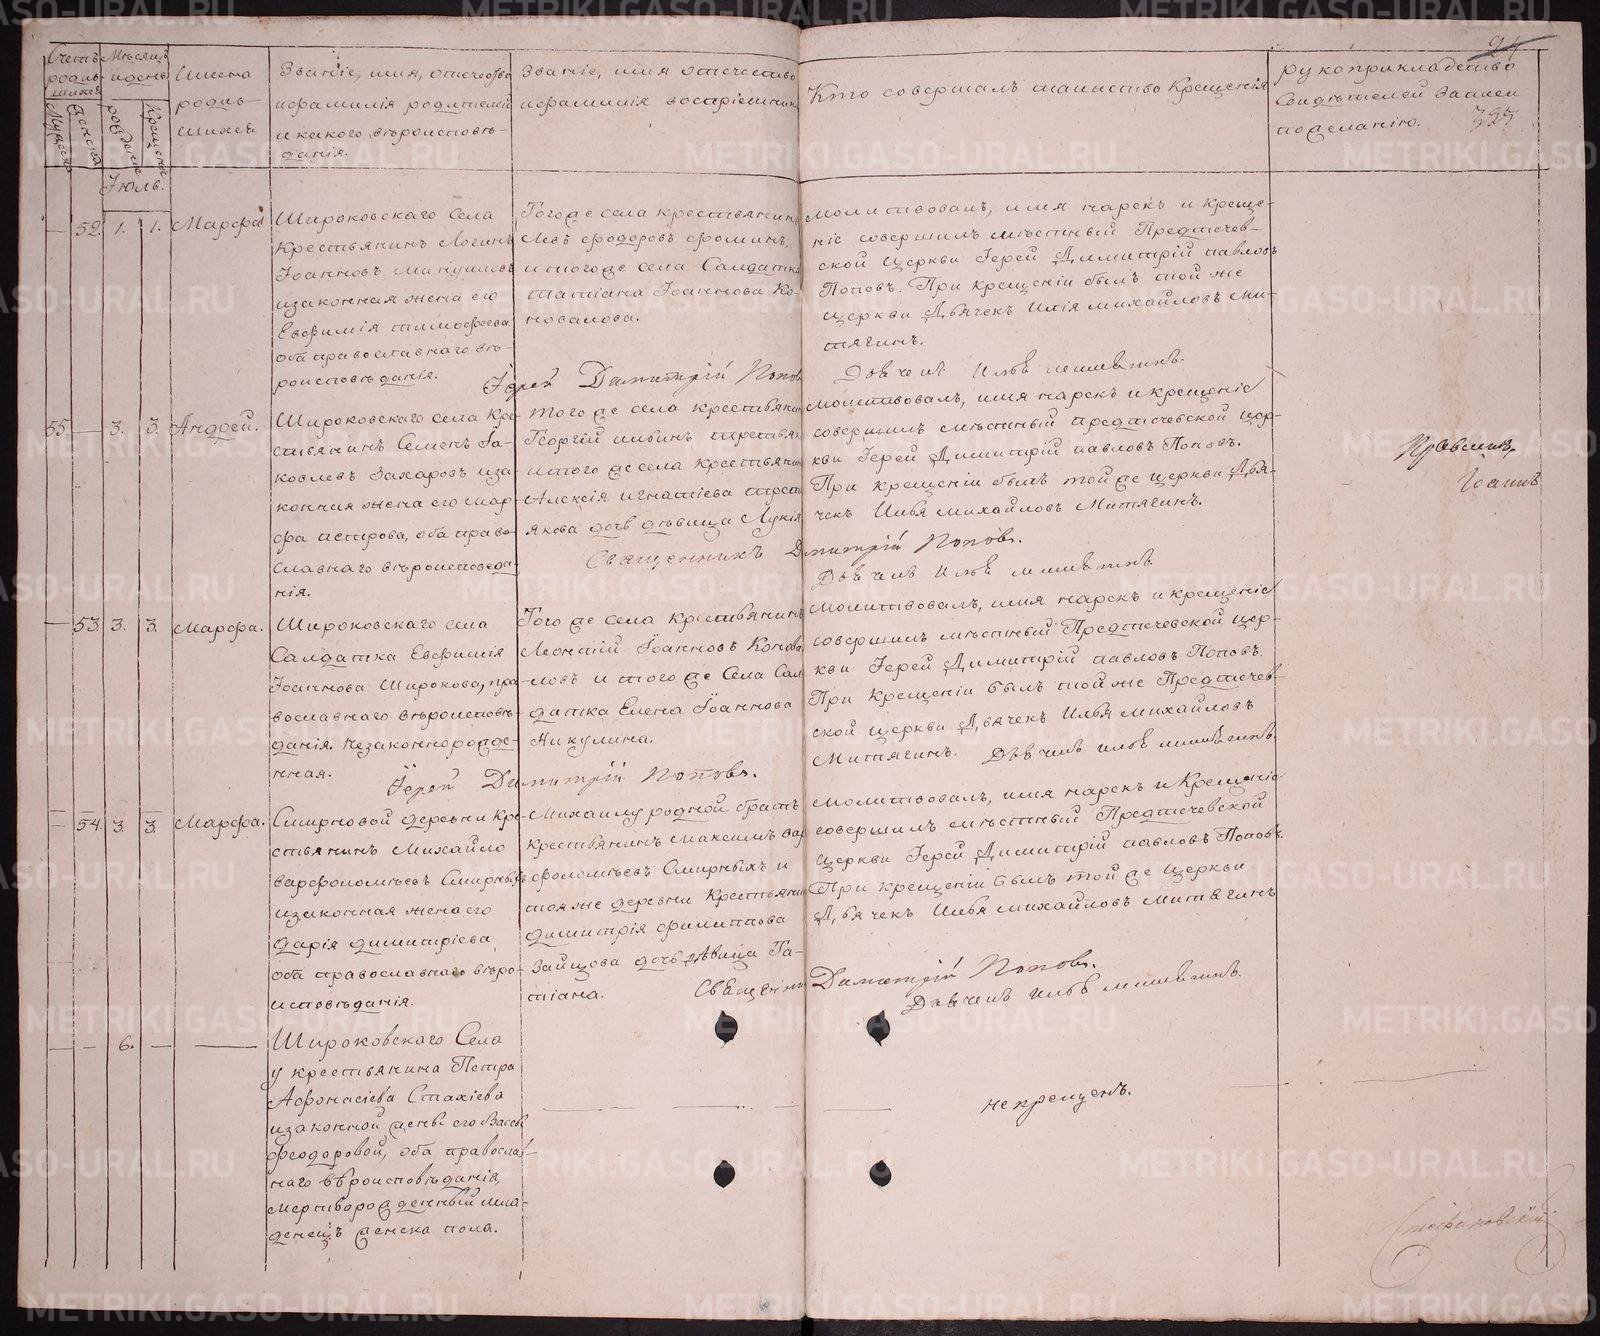 24
325
Счетъ родив-шихся
Мужеска
Женска
Мѣсяцъ и день
рожденіе
Крещеніе
Имена родив-шихся
Званіе, имя, отчество и фамилія родителей и какого вѣроисповѣ-данія.
Званіе, имя отчество и фамилія воспріемник
Кто совершалъ таинство Крещенія
рукоприкладство Свидѣтелей записи по желанію.
Іюль.
— 52. 1. 1. Марфа
Широковскаго Села
крестьянинъ Логинъ
Іоанновъ Мануиловъ
и законная жена его
Евфимія тимофеева
оба православнаго вѣ-
роисповѣданія.
Того же села крестьянин
Левъ Фодоровъ Фоминъ,
и того же села Салдатка
татіана Іоаннова Ко-
новалова.
Молитвовалъ, имя нарекъ и креще-
ніе совершилъ мѣстный Предтечев-
ской церкви Іерей Димитрій павловъ
Поповъ. При крещеніи былъ той же
церкви Дьячекъ Илія михайловъ Ми-
тягинъ.
Іерей Димитрій Попов
55. — 3. 3. Андрей.
Широковскаго села Кре-
стьянинъ Семенъ Іа-
ковлевъ Захаровъ и за-
конная жена его мар
фа петрова, оба право-
славнаго вѣроисповеда-
нія.
того же села крестьянин
Георгій ильинъ третьяк
и того же села крестьянин
Алексія игнатіева трет
якова дочь дѣвица Лукія
Молитвовалъ, имя нарекъ и крещеніе
совершилъ мѣстный предтечевской цер-
кви Іерей Димитрій павловъ Поповъ.
При крещеніи былъ той же церкви Дья-
чекъ Илья михайловъ Митягинъ.
Священникъ Димитрій Поповъ.
— 53. 3. 3. Марфа.
Широковскаго села
Салдатка Евфимія
Іоаннова Широкова, пра
вославнаго вѣроисповѣ-
данія. Незаконнорожде-
нная.
Того же села Крестьянинъ
Леонтій Іоанновъ Конова
ловъ и того же Села Сал
датка Елена Іоаннова
Никулина.
Молитвовалъ, имя нарекъ и крещеніе
совершилъ мѣстный Предтечевской цер-
кви Іерей Димитрій павловъ Поповъ.
При Крещеніи былъ той же Предтечев-
ской церкви Дьячекъ Илья михайловъ
Митягинъ.
Іерей Димитрій Поповъ.
— 54. 3. 3. Марфа.
Смирновой деревни Кре-
стьянинъ Михайло
варфоломѣевъ Смирныхъ
и законная жена его
дарія димитріева
оба православнаго вѣро-
исповѣданія.
Михаилу родной братъ
крестьянинъ Максимъ вар
фоломѣевъ Смирныхъ и
той же деревни Крестьянин
димитрія филиппова
Зайцова дочь дѣвица Та-
тіана.
Молитвовалъ, имя нарекъ и Крещеніе
совершилъ мѣстный Предтечевской
церкви Іерей Димитрій павловъ Поповъ.
При крещеніи былъ той же церкви
Дьячекъ Илья михайловъ митягинъ
Священник Димитрій Поповъ.
— — 6. — —
Широковскаго Села
у крестьянина Петра
Афонасіева Стахіева
и законной жены его Васс
Феодоровой, оба правосла-
наго вѣроисповѣданія,
мертворожденный мла-
денецъ женска пола.
некрещенъ.
Іоаннъ
Стефановскій
METRIKI.GASO-URAL.RU